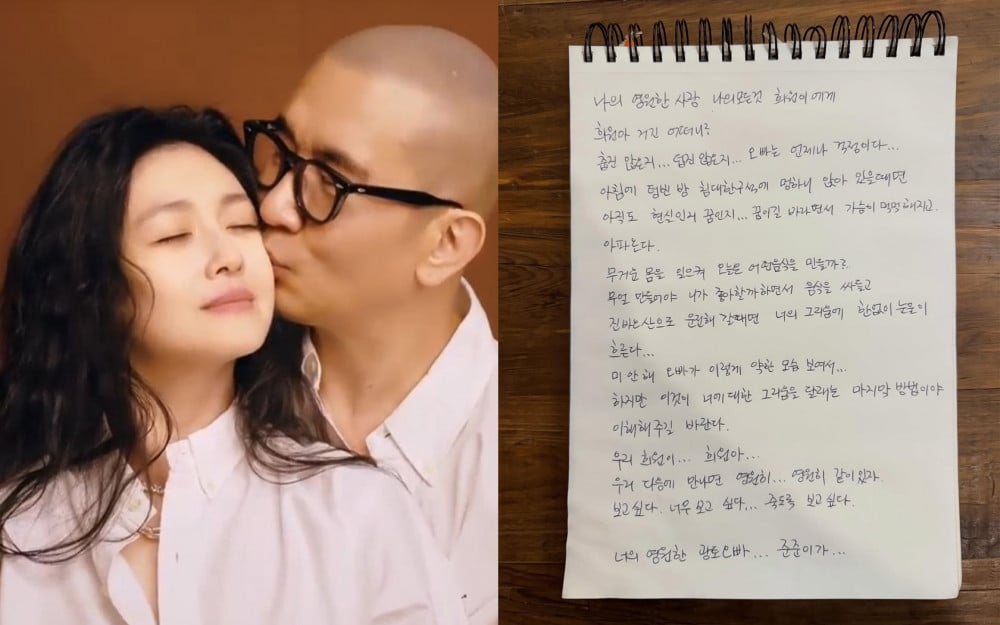 나의 영원한 사랑 나의모든것 희원이에게
희원아 거긴 어떠니?
춥진 않은지... 덥진 않은지... 오빠는 언제나 걱정이다...
아침에 텅빈 방 침대한구석에 멍하니 앉아 있을때면
아직도 현실인지 꿈인지... 꿈이길 바라면서 가슴이 먹먹해지고
아파온다.
무거운 몸을 일으켜 오늘은 어떤음식을 만들까?
무얼 만들어야 너가 좋아할까하면서 음식을 싸들고
진바오산으로 운전해 갈때면 너의 그리움에 한없이 눈물이
흐른다...
미안해 오빠가 이렇게 약한 모습 보여서...
하지만 이것이 너에대한 그리움을 달래는 마지막 방법이야
이해해주길 바란다.
우리 희원이... 희원아...
우리 다음에 만나면 영원히... 영원히 같이있자.
보고싶다. 너무 보고 싶다... 죽도록 보고싶다.
너의 영원한 광토오빠... 준준이가...